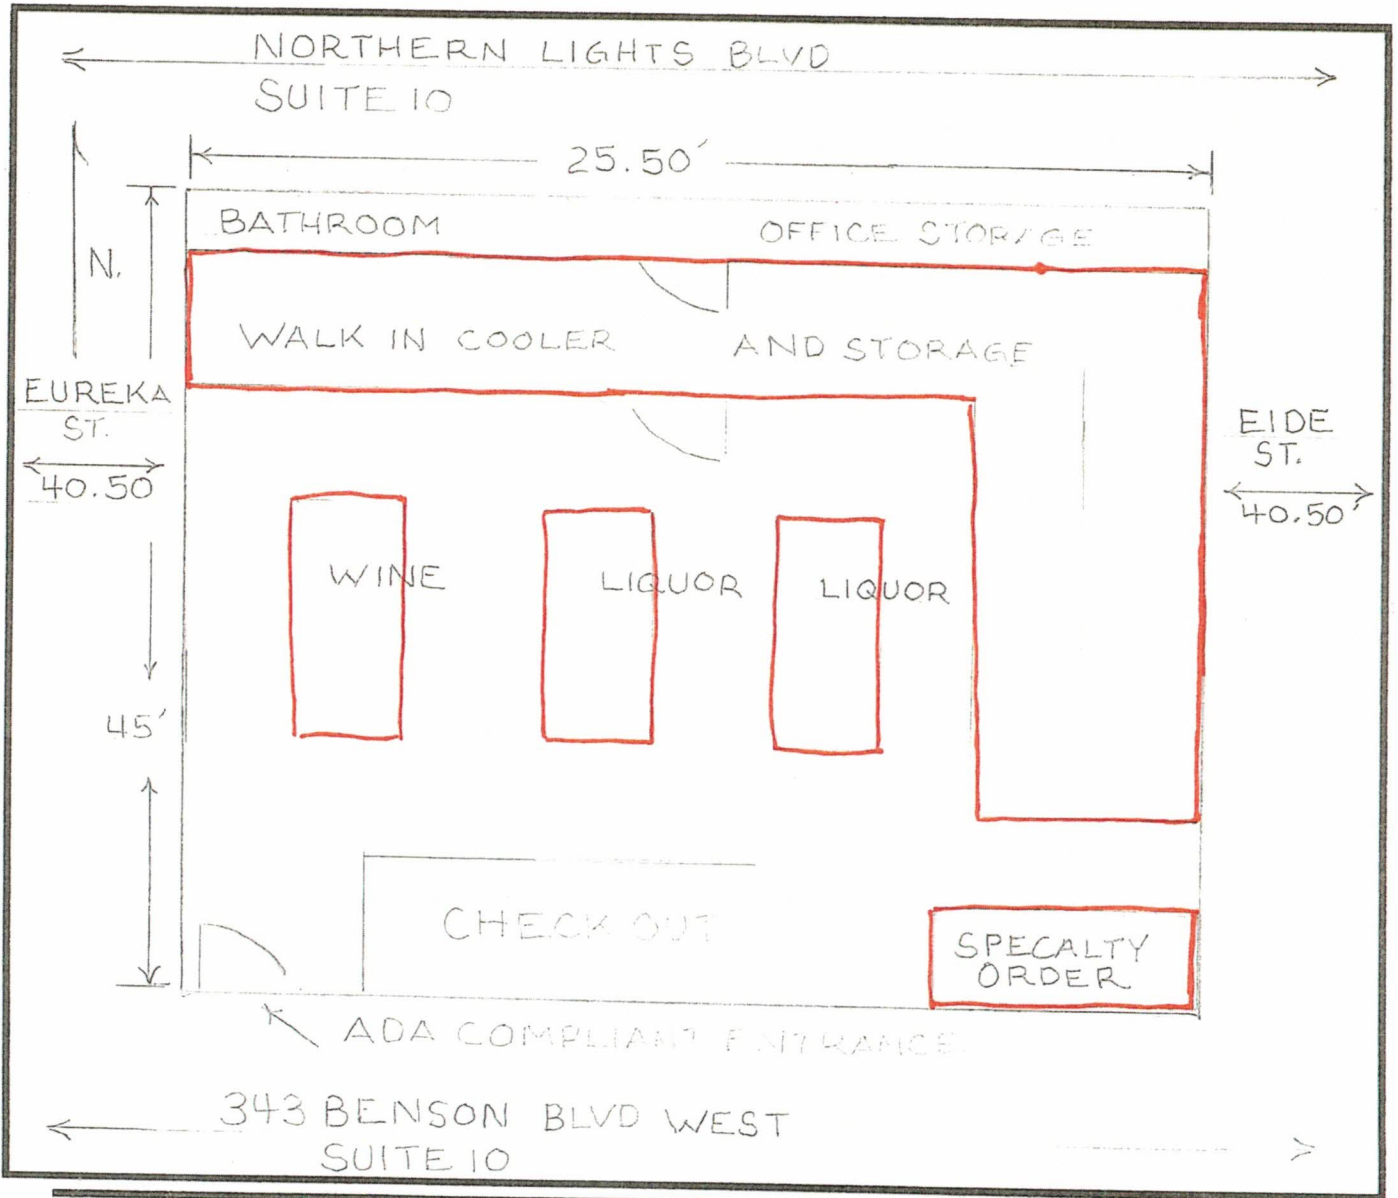 NORTHERN LIGHTS BLVD
SUITE 10
25.50'
BATHROOM
OFFICE STORAGE
N.
WALK IN COOLER
AND STORAGE
EUREKA
ST.
40.50
EIDE
ST.
40.50'
WINE
LIQUOR
LIQUOR
45'
CHECK OUT
SPECALTY
ORDER
ADA COMPLIANT ENTRANCE
343 BENSON BLVD WEST
SUITE 10